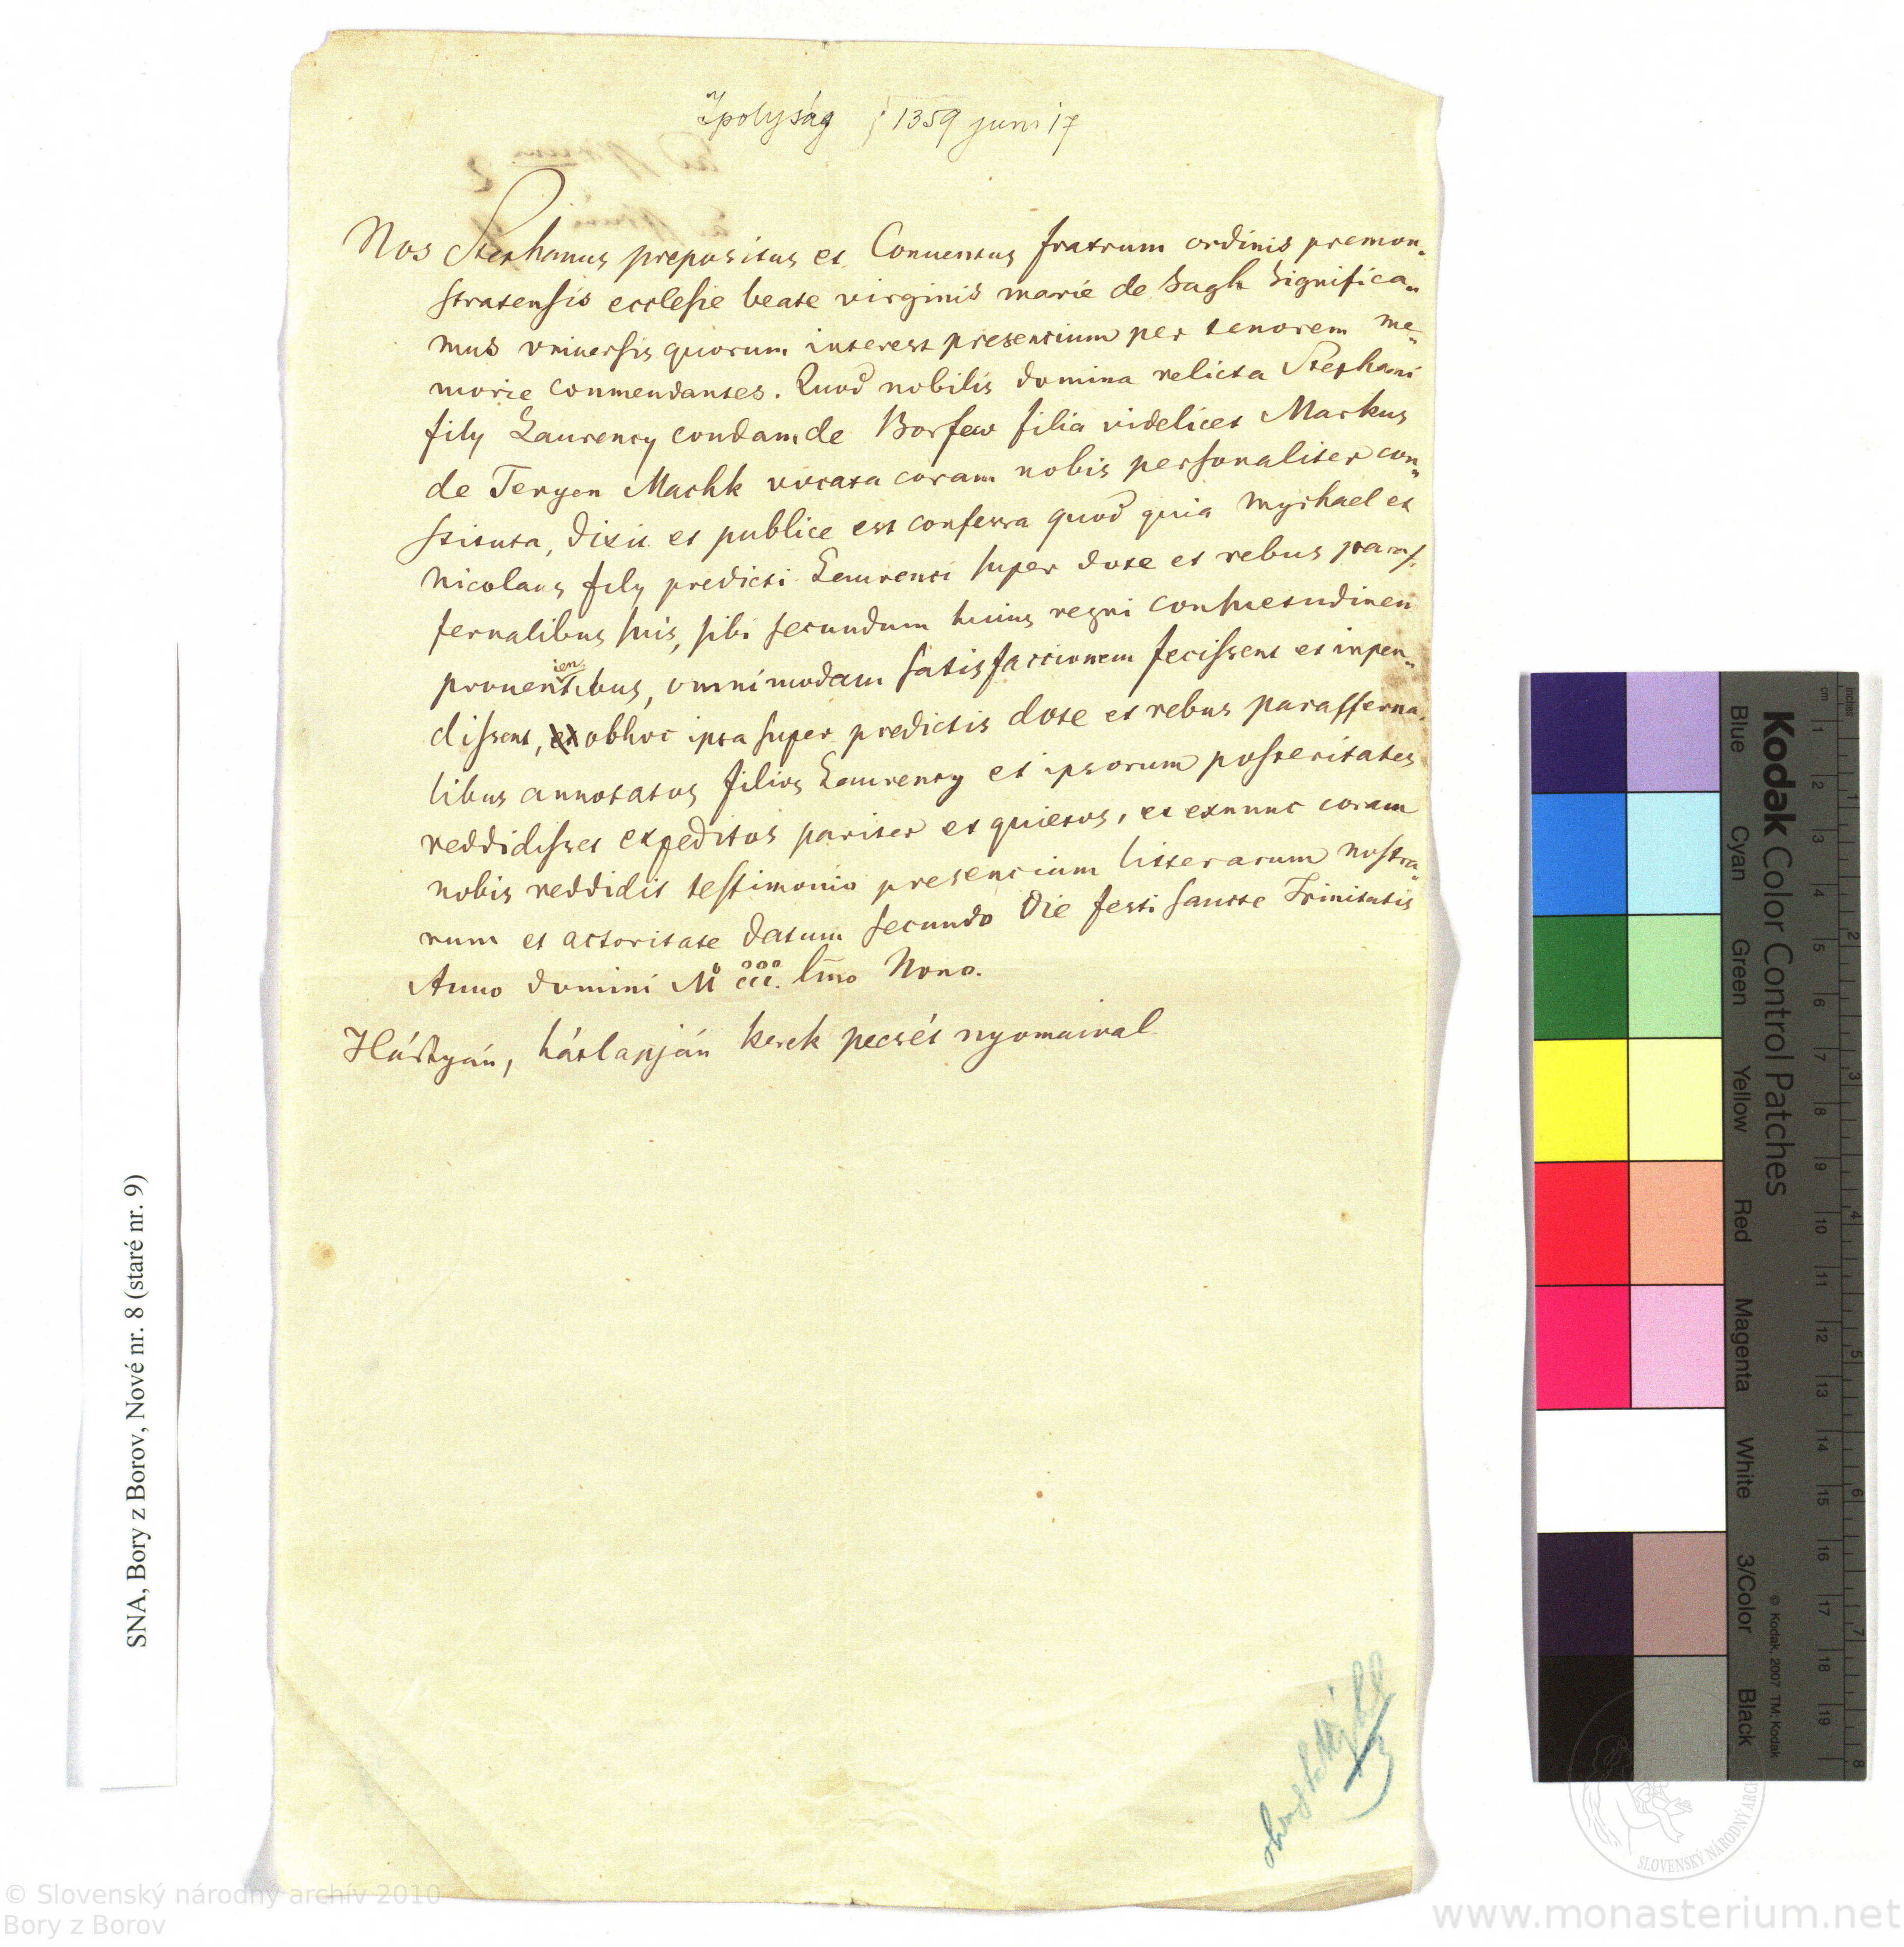 Ipolyság 1359 juni 17
Nos Stephanus prepositus et Conuentus fratrum ordinis premon„
stratensis ecclesie beate virginis marie de Sagh Significa„
mus vniuersis quorum interest presencium per tenorem me„
morie conmendantes. Quod nobilis domina relicta Stephani
fily Laurency condam de Borfew filia videlicet Markus
de Teryen Machk vocata coram nobis personaliter con„
stituta, dixit et publice est confessa quod quia Mychael et
Nicolaus fily predicti Laurenci super dote et rebus paraf„
fernalibus suis, sibi secundum huius regni consuetudinem
prouenientibus, omnimodam satisfaccionem fecissent et inpen„
dissent, obhoc ipsa super predictis dote et rebus parafferna„
libus annotatos filios Laurency et ipsorum posteritates
reddidisset expeditos pariter et quietos, et exnunc coram
nobis reddidit testimonio presencium litterarum nostra„
rum et actoritate datum secundo die festi sancte Trinitatis
Anno domini Mo ccc. lmo Nono.
Hártyán, hátlapján kerek pecsét nyomaival
SNA, Bory z Borov, Nové nr. 8 (staré nr. 9)
Kodak Color Control Patches
Blue Cyan Green Yellow Red Magenta White 3/Color Black
© Kodak, 2007 TM: Kodak
cm 1 2 3 4 5 6 7 8 9 10 11 12 13 14 15 16 17 18 19
inches 1 2 3 4 5 6 7 8
SLOVENSKÝ NÁRODNÝ ARCHÍV
© Slovenský národný archív 2010
Bory z Borov
www.monasterium.net